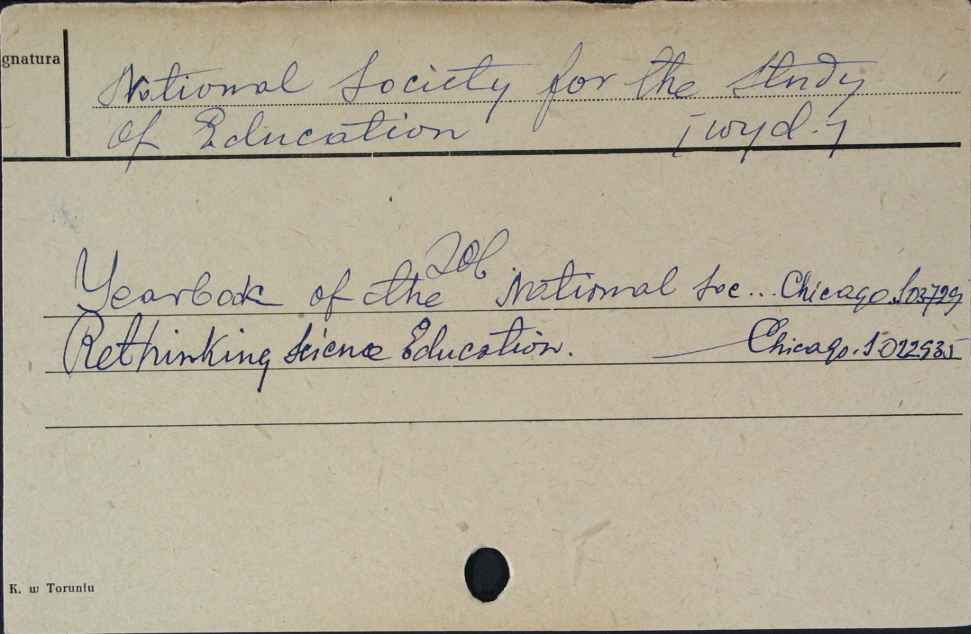 gnatura
National Society for the Study
of Education [wyd.]
Yearbook of the National Soc... Chicago. S 03729
Rethinking Science Education. Chicago. S 022935
K. w Toruniu